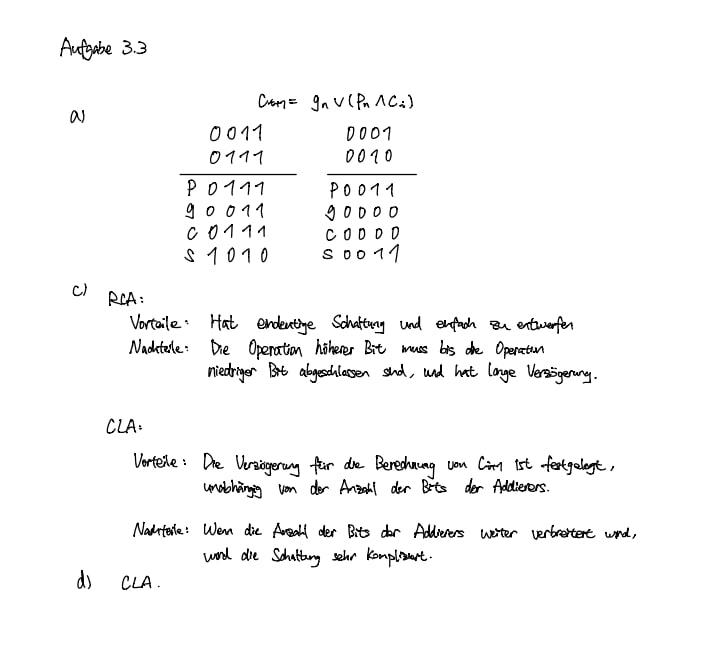 Aufgabe 3.3
a)
Ci+1 = gn ∨ (Pn ∧ Ci)
0011 0001
0111 0010
P 0111 P 0011
g 0011 g 0000
C 0111 C 0000
S 1010 S 0011
c) RCA:
Vorteile: Hat eindeutige Schaltung und einfach zu entwerfen
Nachteile: Die Operation höherer Bit muss bis die Operation
niedriger Bit abgeschlossen sind, und hat lange Verzögerung.
CLA:
Vorteile: Die Verzögerung für die Berechnung von Ci+1 ist festgelegt,
unabhängig von der Anzahl der Bits der Addierers.
Nachteile: Wenn die Anzahl der Bits der Addierers weiter verbreitert wird,
wird die Schaltung sehr kompliziert.
d) CLA.